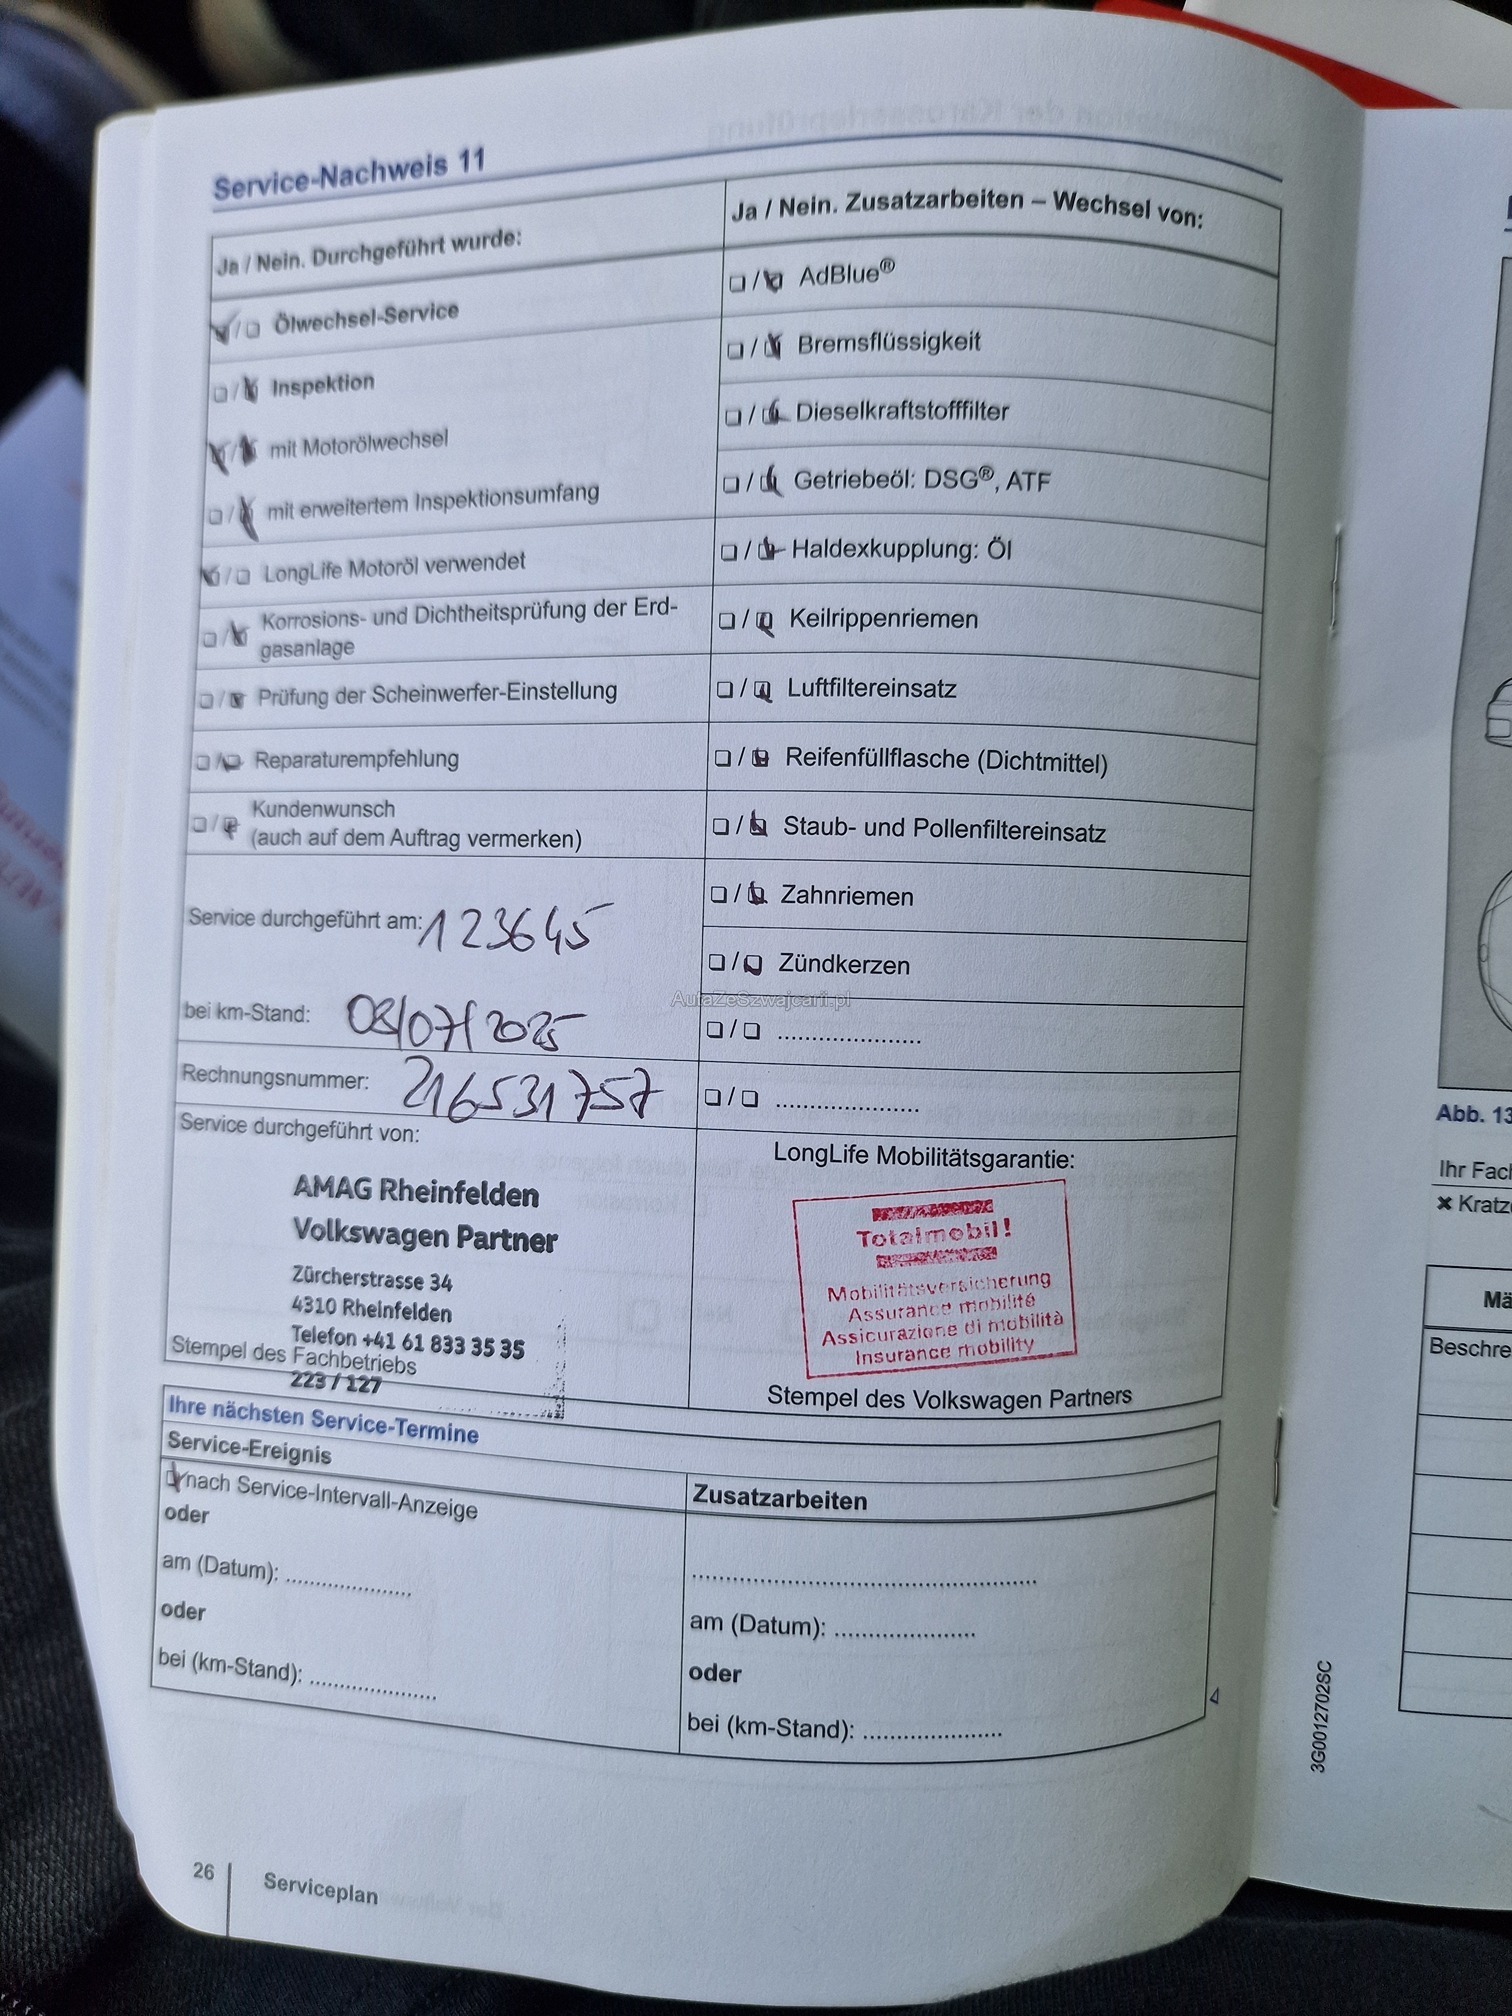 Service-Nachweis 11
Ja / Nein. Durchgeführt wurde:
Ja / Nein. Zusatzarbeiten – Wechsel von:
Ölwechsel-Service
AdBlue®
Inspektion
Bremsflüssigkeit
mit Motorölwechsel
Dieselkraftstofffilter
mit erweitertem Inspektionsumfang
Getriebeöl: DSG®, ATF
LongLife Motoröl verwendet
Haldexkupplung: Öl
Korrosions- und Dichtheitsprüfung der Erd-
gasanlage
Keilrippenriemen
Prüfung der Scheinwerfer-Einstellung
Luftfiltereinsatz
Reparaturempfehlung
Reifenfüllflasche (Dichtmittel)
Kundenwunsch
(auch auf dem Auftrag vermerken)
Staub- und Pollenfiltereinsatz
Zahnriemen
Service durchgeführt am: 123645
Zündkerzen
AutaZeSzwajcarii.pl
bei km-Stand: 08/07/2025
Rechnungsnummer: 216531757
Service durchgeführt von:
LongLife Mobilitätsgarantie:
AMAG Rheinfelden
Volkswagen Partner
Zürcherstrasse 34
4310 Rheinfelden
Telefon +41 61 833 35 35
Stempel des Fachbetriebs
223 / 127
Totalmobil!
Mobilitätsversicherung
Assurance mobilité
Assicurazione di mobilità
Insurance mobility
Stempel des Volkswagen Partners
Ihre nächsten Service-Termine
Service-Ereignis
Zusatzarbeiten
nach Service-Intervall-Anzeige
oder
am (Datum): .....................
oder
bei (km-Stand): .....................
am (Datum): .....................
oder
bei (km-Stand): .....................
26
Serviceplan
3G0012702SC
Abb. 13
Ihr Fach
Beschre